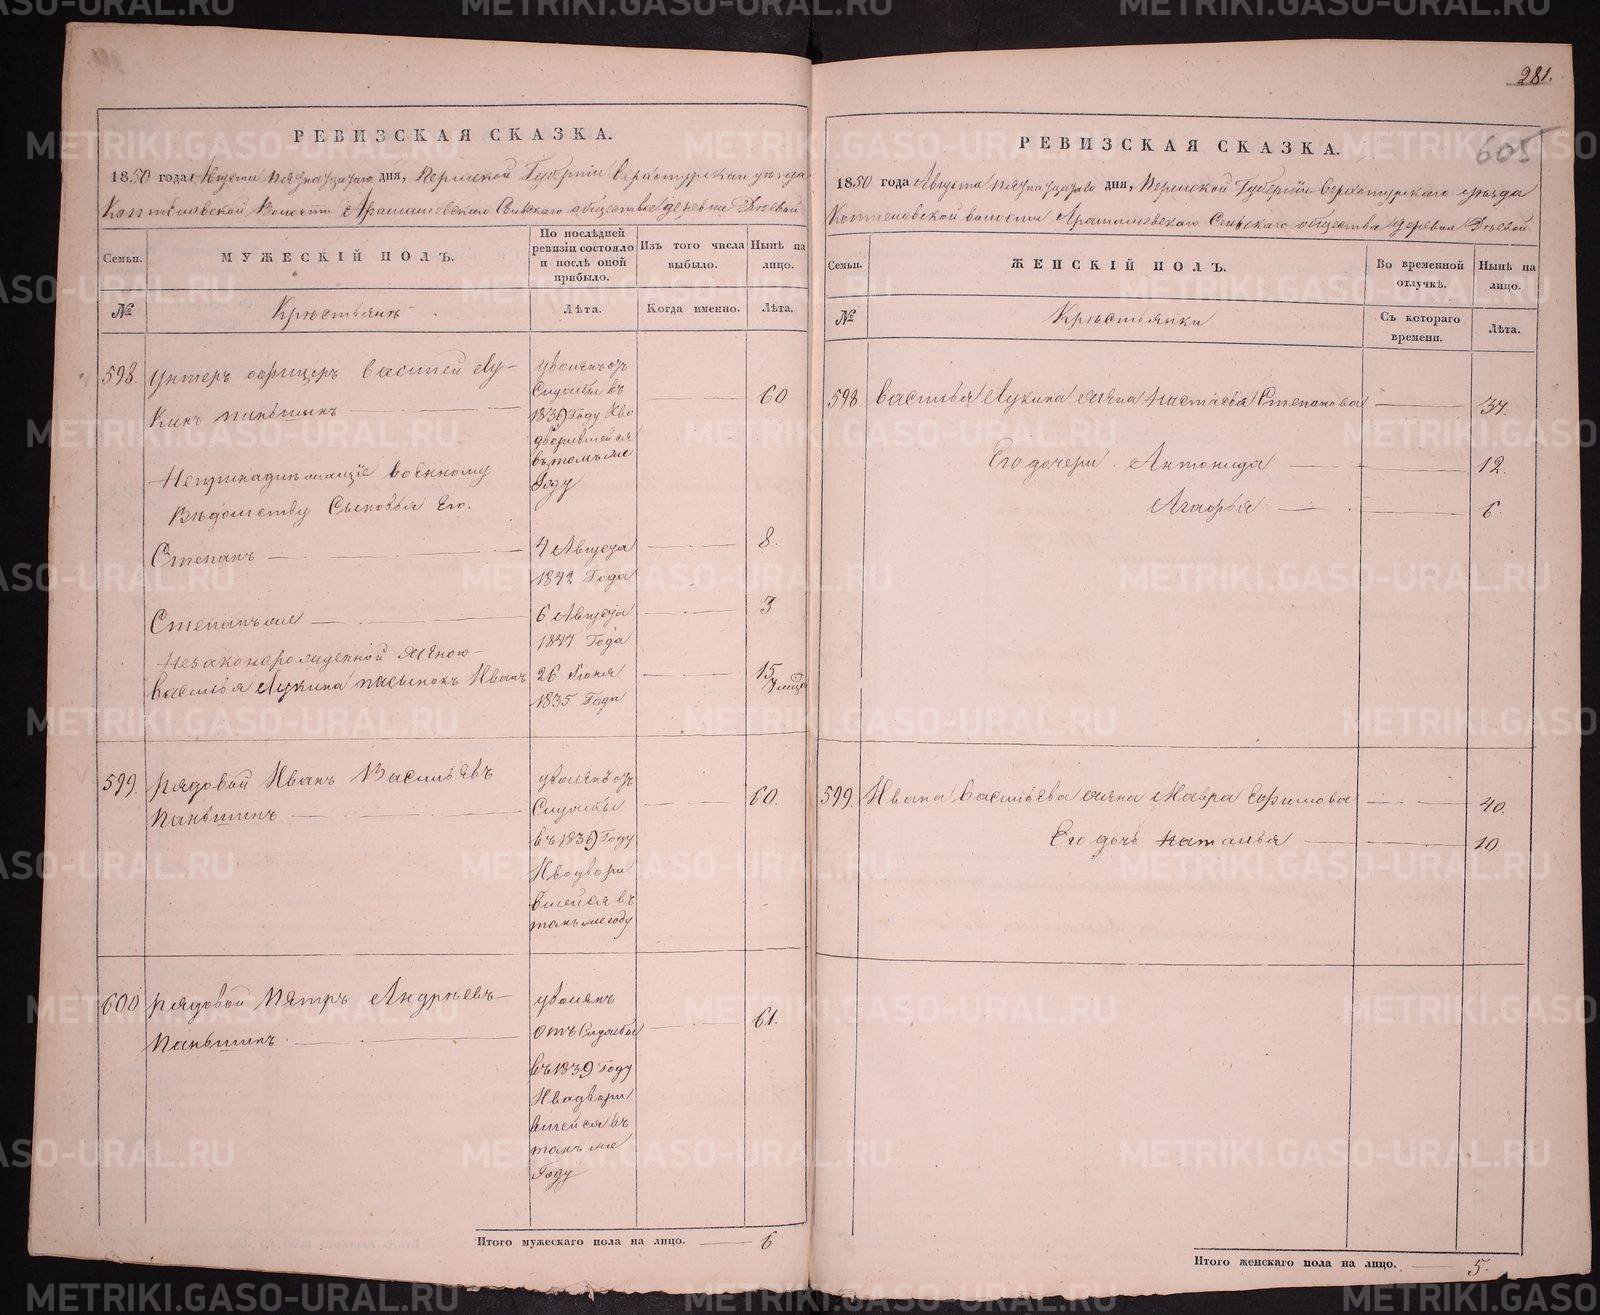 281.
605
РЕВИЗСКАЯ СКАЗКА.
1850 года Августа пятнатцатаго дня, Пермской Губернiи Верхотурскаго уѣзда
Коптеловской волости Арамашевскаго Сельскаго общества деревни
Семьи.
МУЖЕСКІЙ ПОЛЪ.
По послѣдней ревизіи состояло и послѣ оной прибыло.
Изъ того числа выбыло.
Нынѣ на лицо.
№
Крестьянъ
Лѣта.
Когда именно.
Лѣта.
598. Унтеръ офицеръ Василей Лу-
кинъ Паньшинъ
уволенъ отъ
Службы въ
1839 Году И во
дворившейся
въ томъ же
Году
60
Непринадлежащiе военному
Вѣдомству Сыновья Его.
Степанъ 4 Августа 8.
1842 Года
Степанъ же 6 Августа 3
1847 Года
Незаконорожденной женою
Василья Лукина пасынокъ Иванъ 26 Июня 15
1835 Года
599. Рядовой Иванъ Васильевъ
Паньшинъ
уволенъ отъ
Службы
въ 1839 Году
И водвори
вшейся въ
томъ же году
60.
600 Рядовой Петръ Андреевъ
Паньшинъ
уволенъ
отъ Службы
въ 1839 Году
И водвори
вшейся въ
томъ же
Году
61.
Итого мужескаго пола на лицо. 6
РЕВИЗСКАЯ СКАЗКА.
1850 года Августа пятнатцатаго дня, Пермской Губернiи Верхотурскаго уѣзда
Коптеловской волости Арамашевскаго Сельскаго общества деревни
Семьи.
ЖЕНСКІЙ ПОЛЪ.
Во временной отлучкѣ.
Нынѣ на лицо.
№
Крестьянки
Съ котораго времени.
Лѣта.
598 Василья Лукина жена Настасья Степанова 37.
Его дочери. Антонида 12.
Агафья 6.
599. Ивана Васильева жена Мавра Ефимова 40.
Его дочь Наталья 10
Итого женскаго пола на лицо. 5.
METRIKI.GASO-URAL.RU